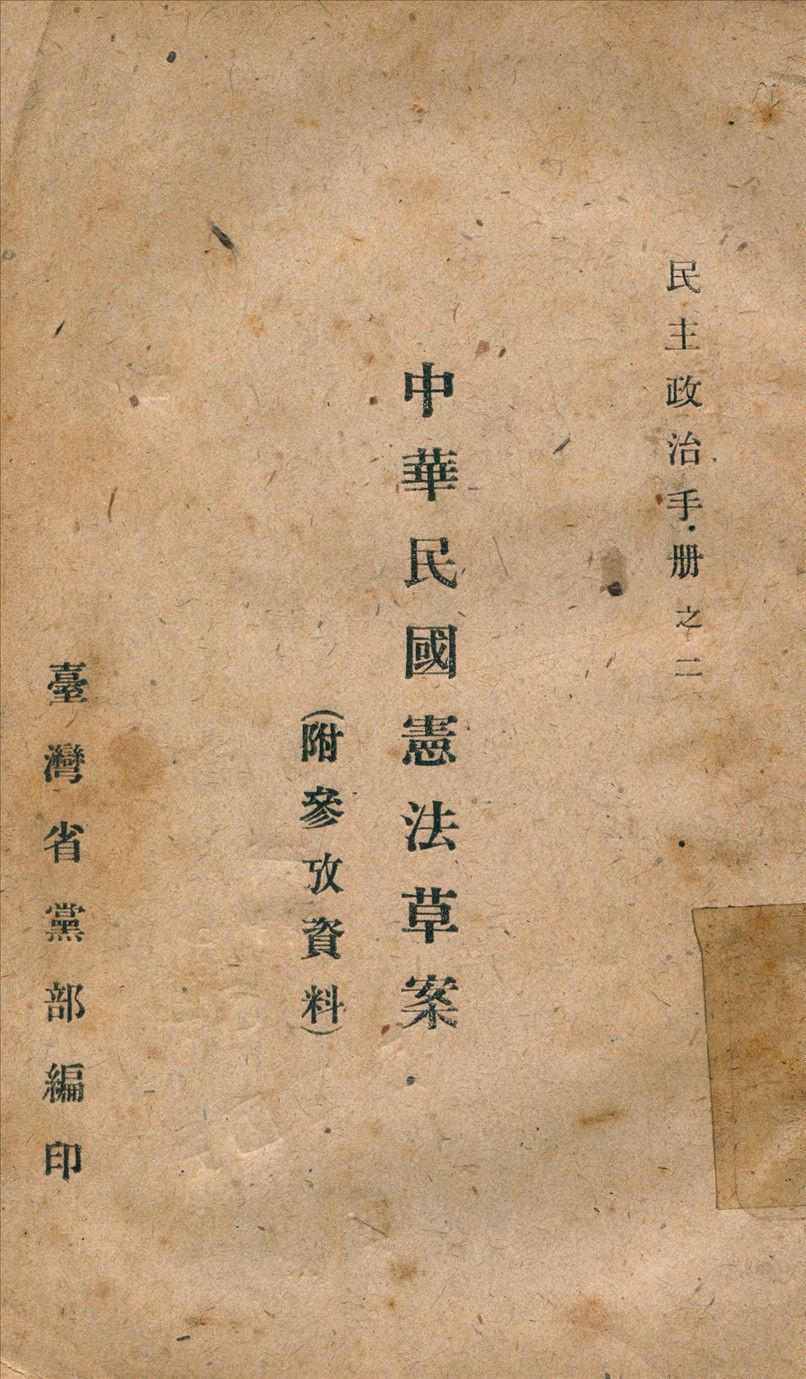 民主政治手册之二
中華民國憲法草案
(附參攷資料)
臺灣省黨部編印